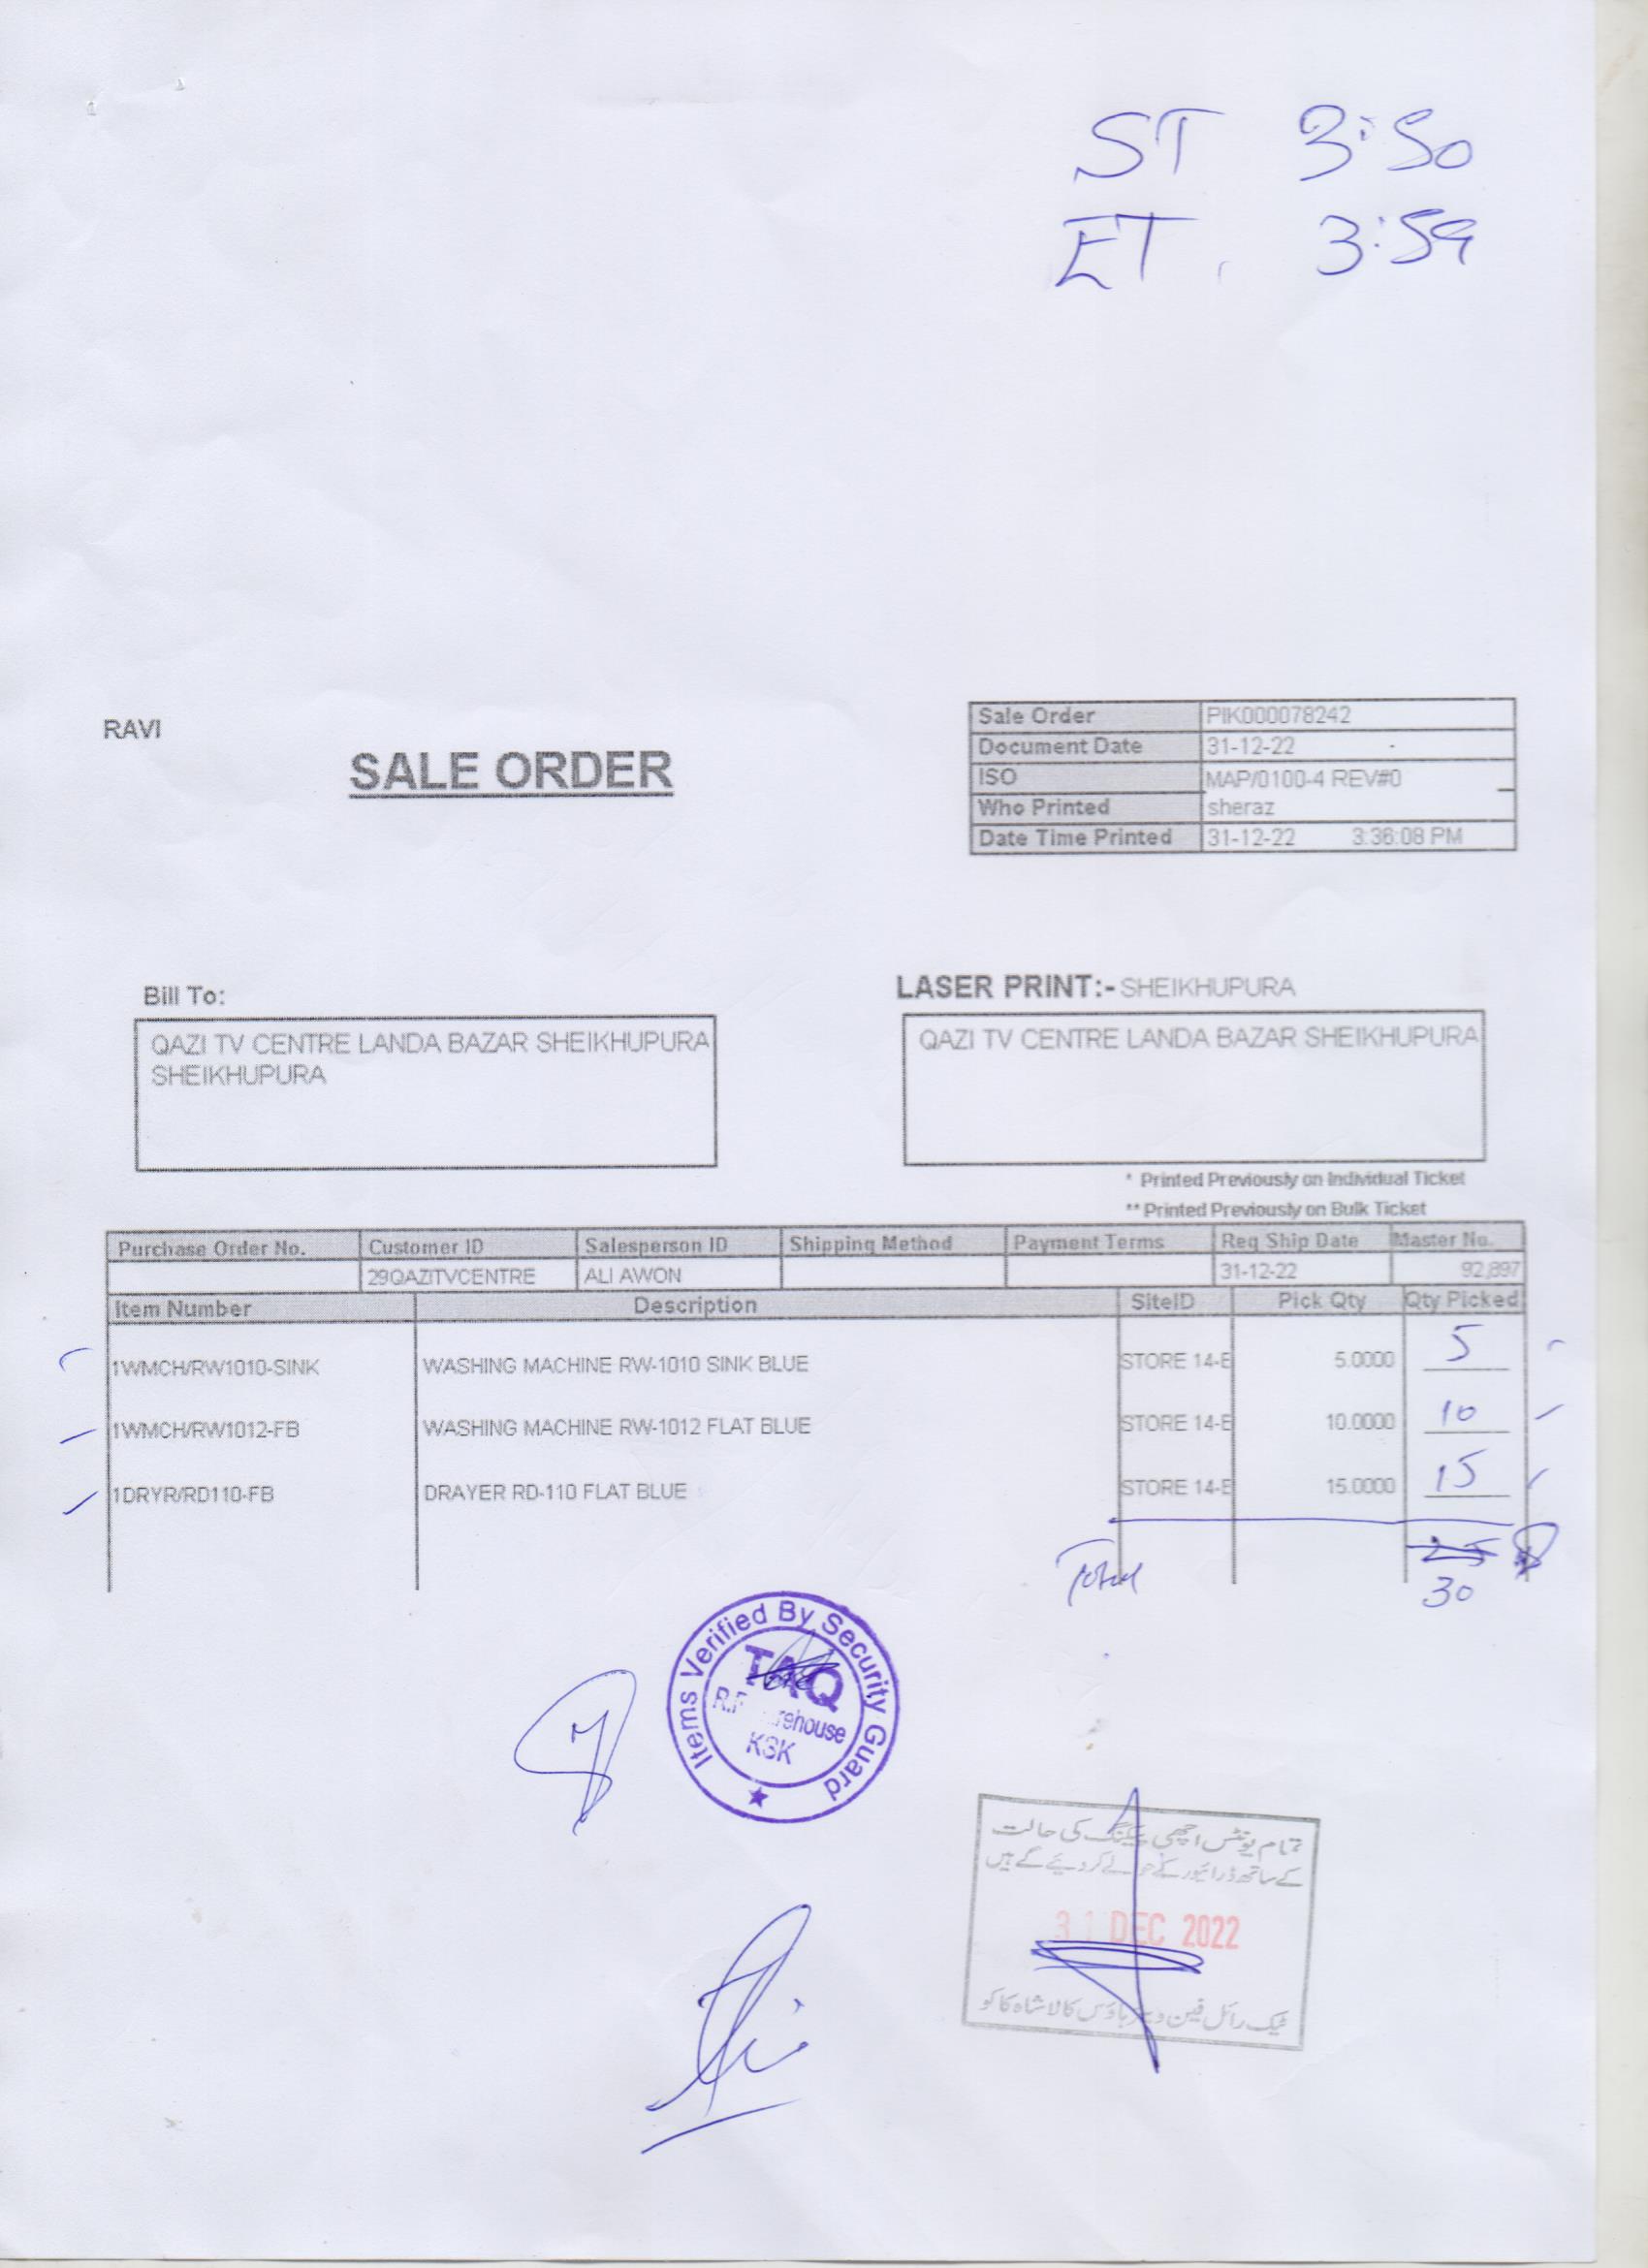 ST 3:50
ET. 3:59
RAVI
SALE ORDER
Sale Order PIK000078242
Document Date 31-12-22
ISO MAP/0100-4 REV#0
Who Printed sheraz
Date Time Printed 31-12-22 3:36:08 PM
Bill To:
QAZI TV CENTRE LANDA BAZAR SHEIKHUPURA
SHEIKHUPURA
LASER PRINT:- SHEIKHUPURA
QAZI TV CENTRE LANDA BAZAR SHEIKHUPURA
* Printed Previously on Individual Ticket
** Printed Previously on Bulk Ticket
Purchase Order No. Customer ID Salesperson ID Shipping Method Payment Terms Req Ship Date Master No.
29QAZITVCENTRE ALI AWON 31-12-22 92,897
Item Number Description SiteID Pick Qty Qty Picked
1WMCH/RW1010-SINK WASHING MACHINE RW-1010 SINK BLUE STORE 14-E 5.0000 5
1WMCH/RW1012-FB WASHING MACHINE RW-1012 FLAT BLUE STORE 14-E 10.0000 10
1DRYR/RD110-FB DRAYER RD-110 FLAT BLUE STORE 14-E 15.0000 15
Total 25
30
Items Verified By Security Guard
TAQ
KSK
تمام یونٹس اچھی پیکنگ کی حالت
کے ساتھ ڈرائیور کے حوالے کر دیئے گئے ہیں
31 DEC 2022
ٹیک رائل فین ویئر ہاؤس کالا شاہ کاکو